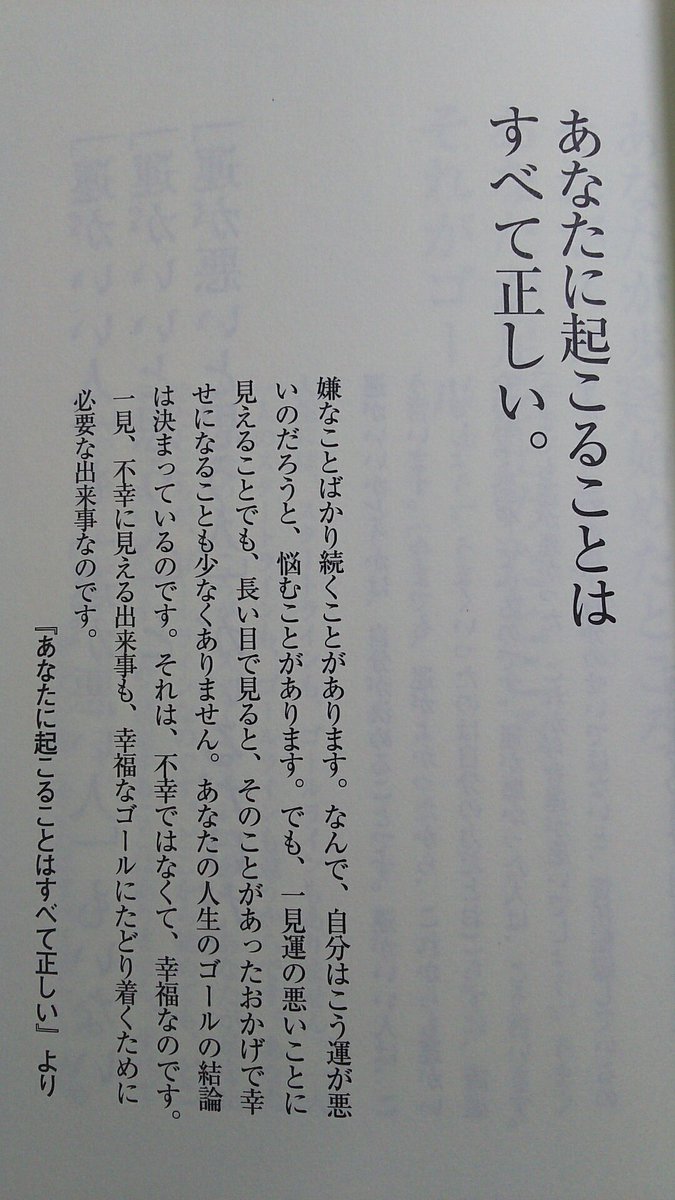 あなたに起こることは
すべて正しい。
嫌なことばかり続くことがあります。なんで、自分はこう運が悪
いのだろうと、悩むことがあります。でも、一見運の悪いことに
見えることでも、長い目で見ると、そのことがあったおかげで幸
せになることも少なくありません。あなたの人生のゴールの結論
は決まっているのです。それは、不幸ではなくて、幸福なのです。
一見、不幸に見える出来事も、幸福なゴールにたどり着くために
必要な出来事なのです。
『あなたに起こることはすべて正しい』より